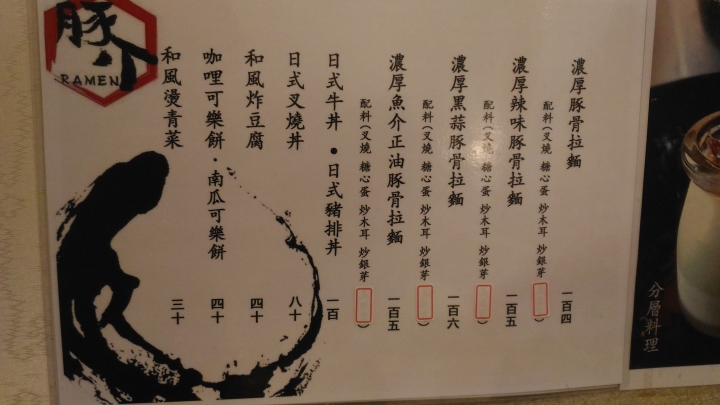 濃厚豚骨拉麵 一百四
配料(叉燒 糖心蛋 炒木耳 炒銀芽 )
濃厚辣味豚骨拉麵 一百五
配料(叉燒 糖心蛋 炒木耳 炒銀芽 )
濃厚黑蒜豚骨拉麵 一百六
配料(叉燒 糖心蛋 炒木耳 炒銀芽 )
濃厚魚介正油豚骨拉麵 一百五
配料(叉燒 糖心蛋 炒木耳 炒銀芽 )
日式牛丼 ●日式豬排丼 一百
日式叉燒丼 八十
和風炸豆腐 四十
咖哩可樂餅·南瓜可樂餅 四十
和風燙青菜 三十
豚介
RAMEN
分層料理